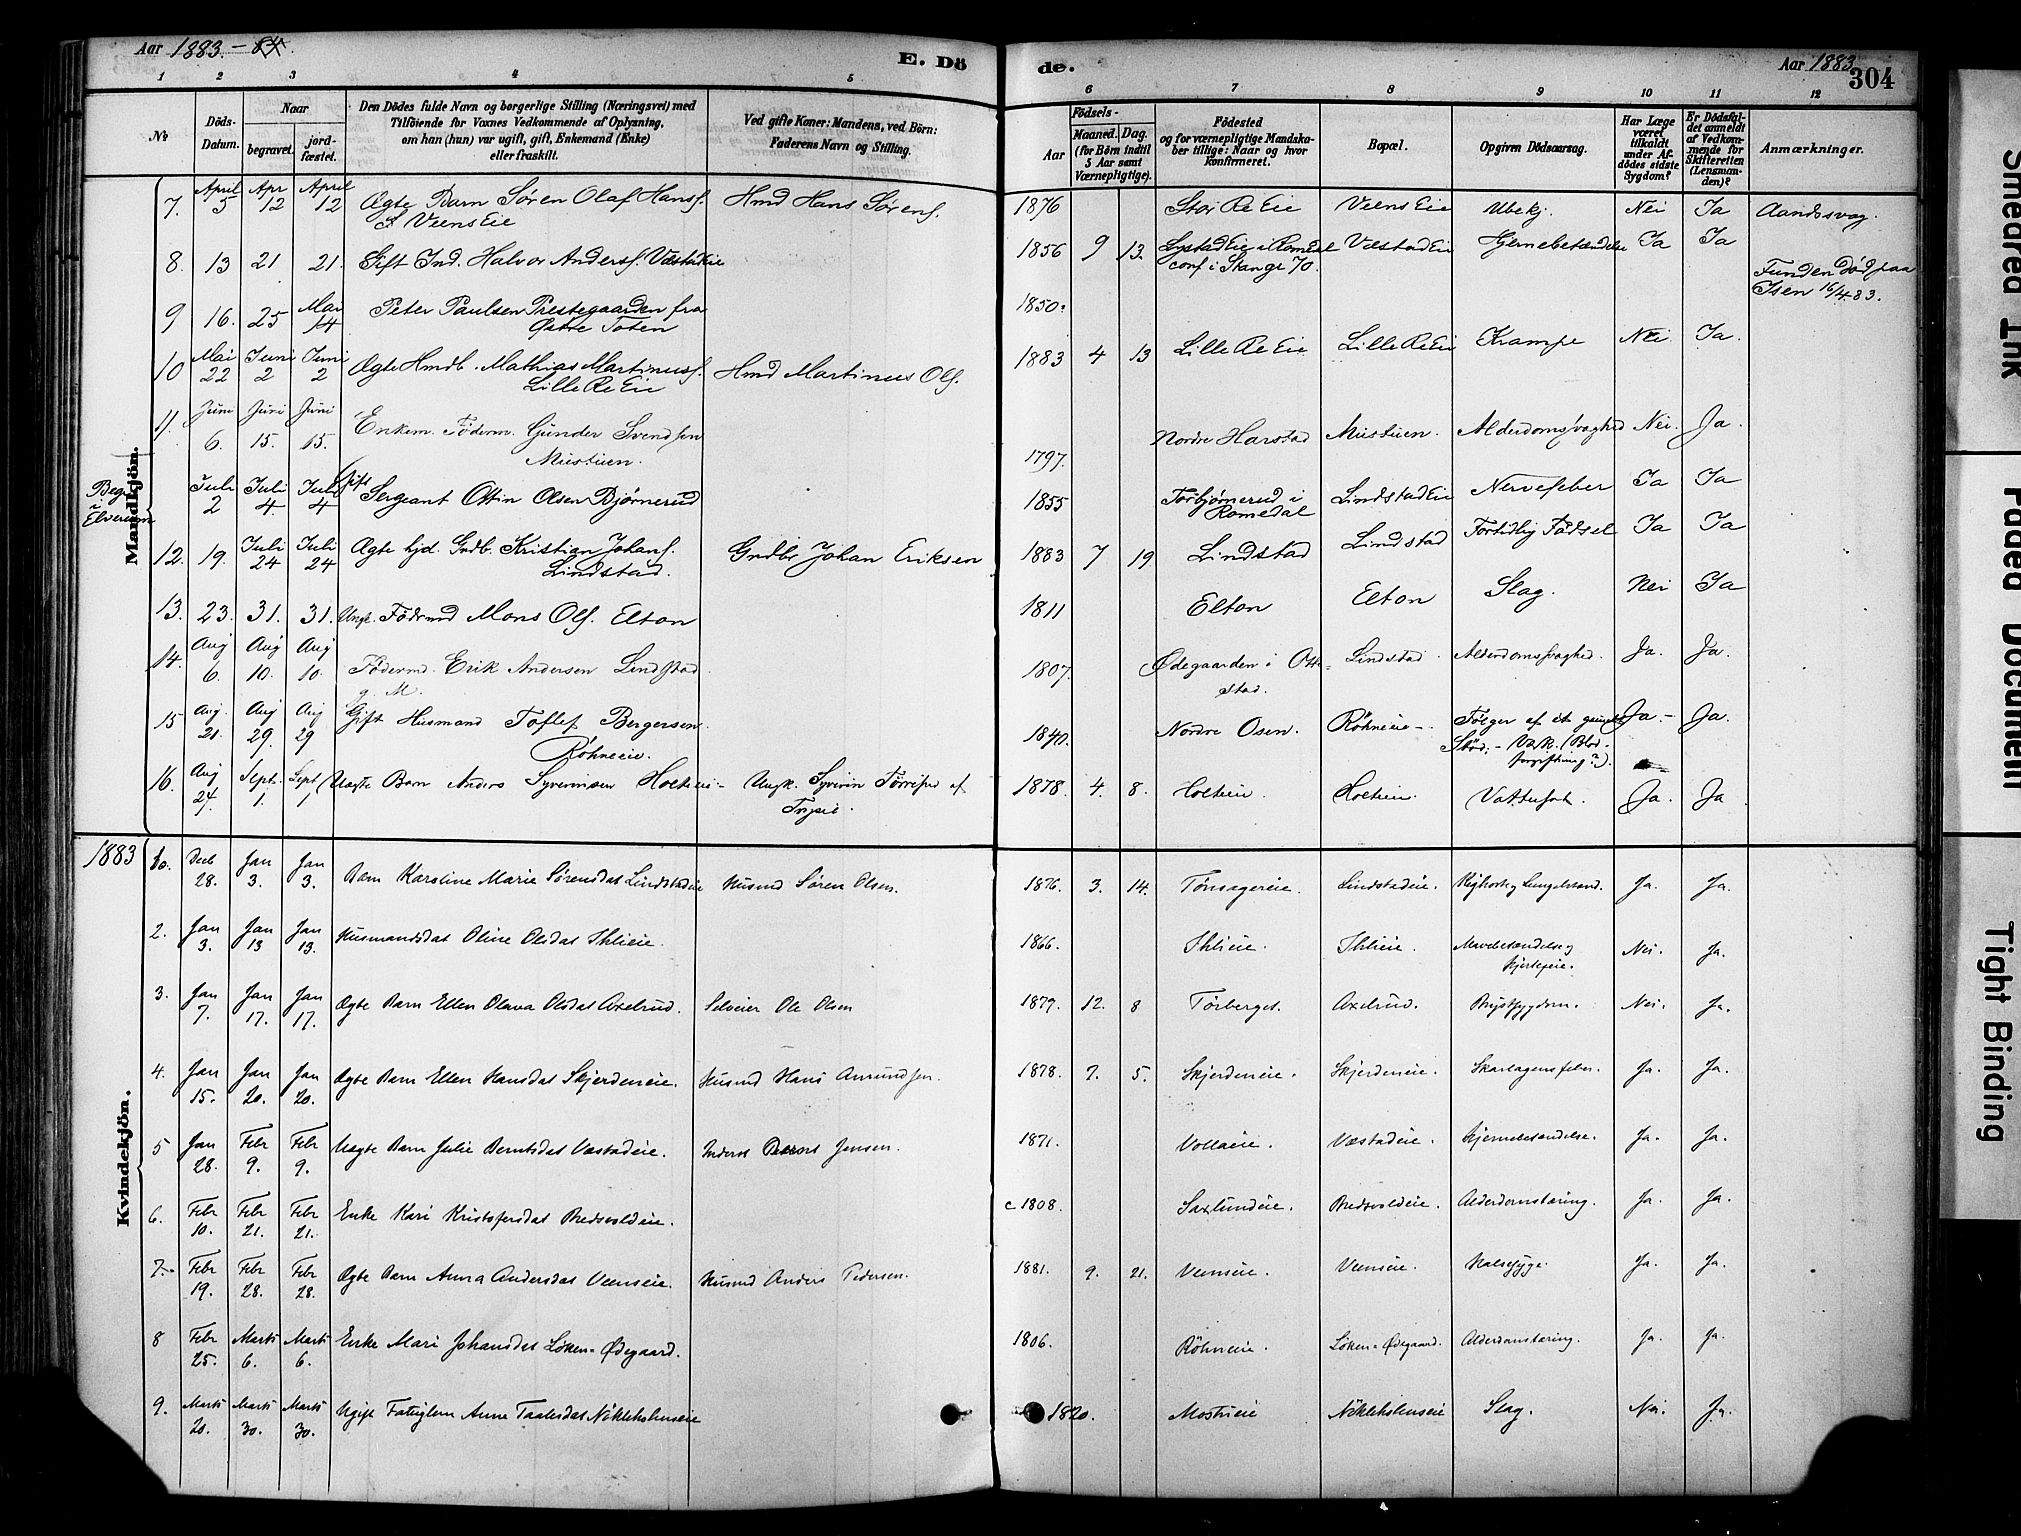 Aar 1883. - 84.
E. Dö
de.
Aar 1883
304
1 2 3 4 5 6 7 8 9 10 11 12
No
Döds-
Datum.
Naar
begravet.
jord-
fæstet.
Den Dödes fulde Navn og borgerlige Stilling (Næringsvei) med
Tilföiende for Voxnes Vedkommende af Oplysning,
om han (hun) var ugift, gift, Enkemand (Enke)
eller fraskilt.
Ved gifte Koner: Mandens, ved Börn:
Faderens Navn og Stilling.
Födsels-
Aar
Maaned. Dag.
(for Börn indtil
5 Aar samt
Værnepligtige).
Födested
og for værnepligtige Mandska-
ber tillige: Naar og hvor
konfirmeret.
Bopæl.
Opgiven Dödsaarsag.
Har Læge
været
tilkaldt
under Af-
dödes sidste
Sygdom?
Er Dödsfal-
det anmeldt
af Vedkom-
mende for
Skifteretten
(Lensman-
den)?
Anmærkninger.
Mandkjön.
7. April 5 Apr 12 April 12 Ægte Barn Søren Olaf Hans. Hmd Hans Sørens. 1876 Stor Re Eie Veens Eie Ubekj. Nei Ja Aandssvag.
S. Veens Eie
8. 13 21 21. Gift Ind. Halvor Anders. Væstadeie 1856 9 13. Lystad Eie i Romedal Væstad Eie Hjernebetændelse Ja Ja
conf. i Stange 70.
9 16. 25 Mai 14 Peter Paulsen Prestegaarden fra 1850. Funden død paa
Østre Toten Isen 16/4 83.
10 Mai 22 Juni 2 Juni 2 Ægte Hmdb. Mathias Martinus. Hmd Martinus Ols. 1883 4 13 Lille Re Eie Lille Re Eie Krampe Nei Ja.
Lille Re Eie
11 Juni 6. Juni 15. Juni 15. Enkem. Føderm. Gunder Svendsen 1797. Nordre Harstad Mustuen. Alderdomssvaghed Nei. Ja.
Mustuen.
Begr. i Elverum Juli 2 Juli 4 Juli 4 Gift Sergeant Ottin Olsen Bjørnerud 1855 Torbjørnerud i Lindstad Eie Nervefeber Ja Ja
Romedal
12. 19. Juli 24 Juli 24 Ægte hjd. Grdb. Kristian Johans. Grdbr Johan Eriksen 1883 7 19 Lindstad Lindstad Fortidlig Fødsel Ja Ja
Lindstad.
13. 23. 31. 31. Ungk. Fødrmd Mons Ols. Elton 1811 Elton Elton Slag. Nei Ja
14. Aug 6. Aug 10. Aug 10. Føderm. Erik Andersen Lindstad 1807. Ødegaarden i Ott- Lindstad. Alderdomssvaghed. Ja. Ja.
g. M. stad.
15 Aug. 21. Aug 29. Aug 29 Gift Husmand Toflef Bergersen 1840. Nordre Osen. Røhneeie - Følger af et gammelt Ja. - Ja.
Røhneeie. Stød, - (Blod-
forgiftning?).
16. Aug 24. Sept. 1. Sept 1 Uægte Barn Anders Syverinsen Holteeie - Ungk. Syverin af 1878. 4. 8. Holteeie. Holteeie. Vattersot. Ja. Ja
Trysil.
1883
Kvindekjön.
1. Decb 28. Jan 3. Jan 3. Barn Karoline Marie Sørensdat Lindstadeie Husmd Søren Olsen. 1876. 3. 14. Tønsageeie. Lindstadeie. Kighoste og Lungebetænd. Ja. Ja.
2. Jan 3. Jan 13 Jan 13. Husmandsdat Oline Olsdat Ihleeie. 1866. Ihleeie. Ihleeie. Mavebetændelse og Nei. Ja.
3. Jan 7. Jan 17. Jan 17. Ægte Barn Ellen Olava Olsdat Axelrud. Selveier Ole Olsen 1879. 12. 8 Tørberget. Axelrud. Brystsygdom. Nei. Ja.
4. Jan 15. Jan 20. Jan 20. Ægte Barn Ellen Hansdat Skjerdeneie. Husmd Hans Amundsen. 1878. 7. 5. Skjerdeneie. Skjerdeneie. Skarlagensfeber. Ja. Ja.
5 Jan 28. Febr 9. Febr 9. Uægte Barn Julie Berntsdat Væstadeie. Inderst Bernt Jensen. 1871. Vollaeie. Væstadeie. Hjernebetændelse. Ja. Ja.
6. Febr 10. Febr 21. Febr 21. Enke Kari Kristofersdat Bredsvoldeie. c. 1808. Saxlundeie. Bredsvoldeie. Alderdomstæring. Ja. Ja.
7. Febr 19. Febr 28. Febr 28. Ægte Barn Anna Andersdat Veenseie. Husmd Anders Pedersen. 1881. 9. 21. Veenseie. Veenseie. Halssyge. Ja. Ja.
8 Febr 25. Marts 6. Marts 6. Enke Mari Johansdat Løken-Ødegaard. 1806. Røhneeie. Løken-Ødegaard. Alderdomstæring. Ja. Ja.
9. Marts 20. Marts 30. Marts 30. Ugift Fattiglem Anne Taalesdat Nökleholmseie 1820. Mostueeie Nökleholmseie Slag. Nei. Ja.
Smeared Ink
Faded Document
Tight Binding